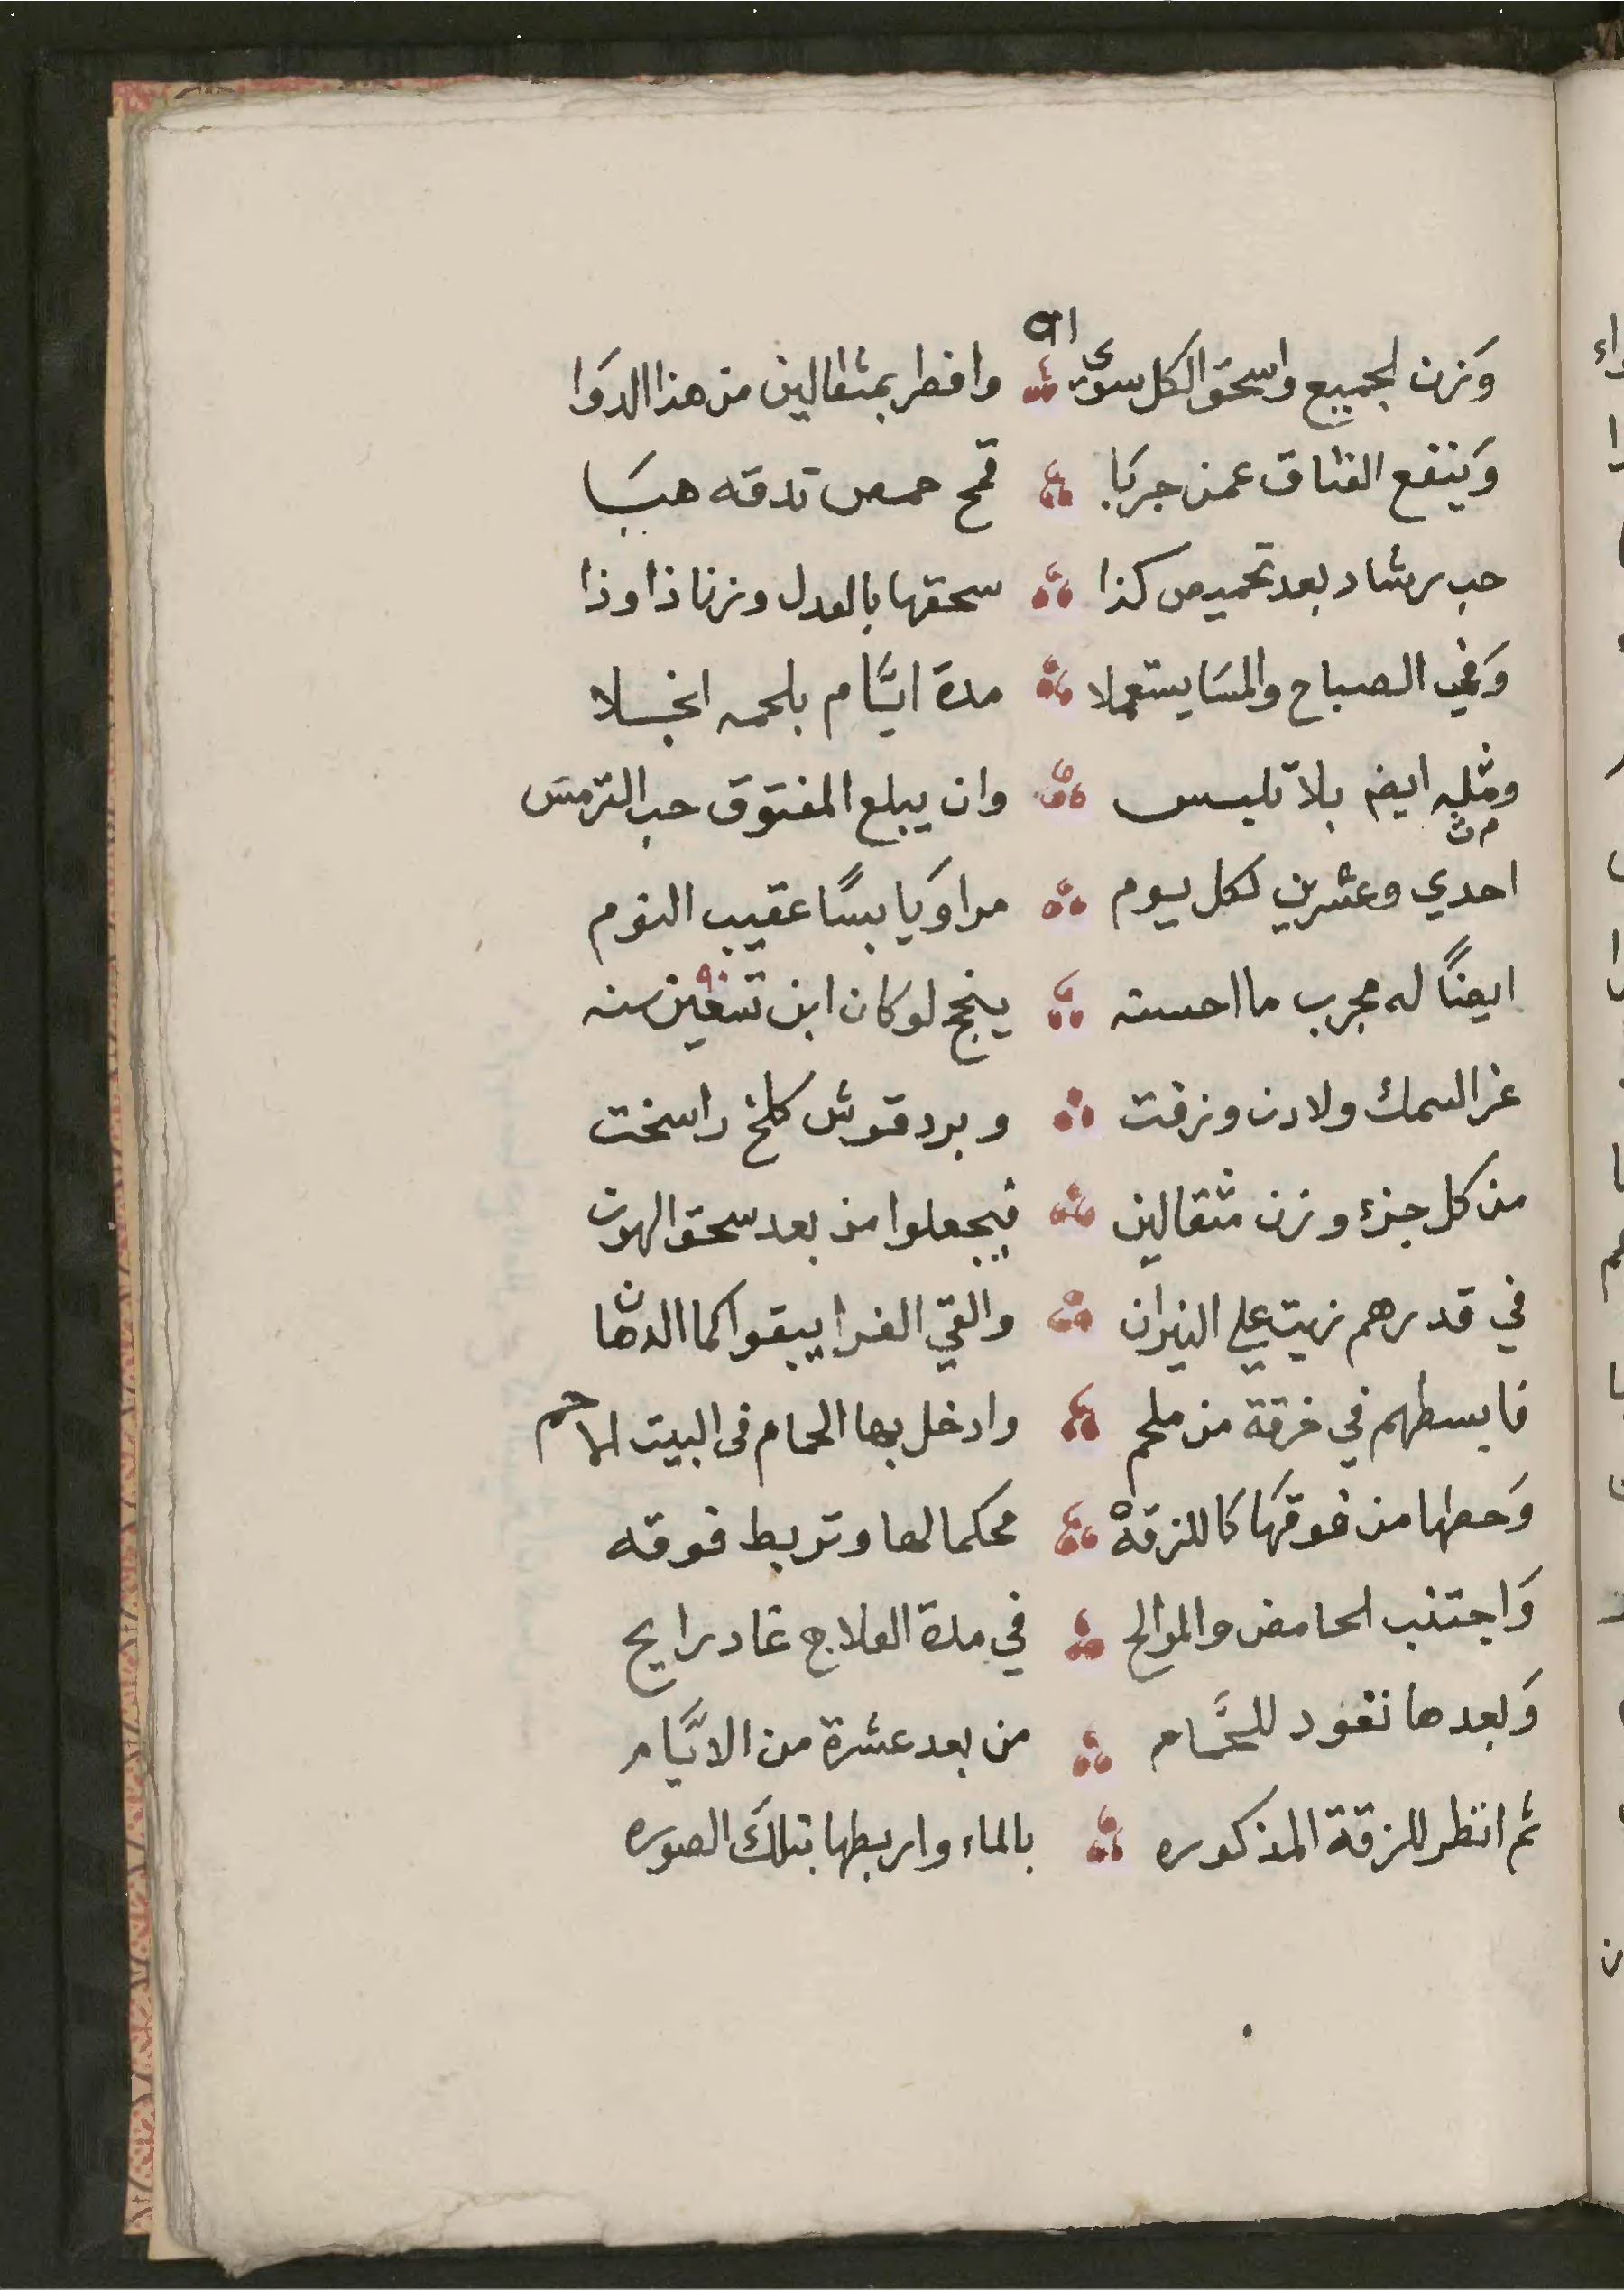 وَزن الجميع واسحق الكل سوى وافطر بمثقالين من هذا الدوَا
وَينفع الفتاق عمن جربَا قمح حمص تدقه هبَا
حب رشاد بعد تحميص كذا سحقها بالعدل وزنا ذا وذا
وَفي الصباح والمسَا يستعملا مدة ايَّام بلحمه انخسلا
ومثله ايضم بلا تلبس وان يبلع المفتوق حب الترمسَ
احدي وعشرين لكل يوم مرا وَيابسًا عقيب النوم
ايضًا له مجرب ما احسنه ينجح لو كان ابن تسعين سنه
غرا السمك ولادن وزفت وبردقوش كلخ راسخت
من كل جزء وزن مثقالين فيجعلوا من بعد سحق الهون
في قدرهم زيت علي النيران والقي الغرا يبقوا كما الدهان
فابسطهم في خرقة من ملحم وادخل بها الحمام فى البيت الاحم
وَحطها من فوقهَا كاللزقهْ محكما لها وتربط فوقه
وَاجتنب الحامض والموالح في مدة العلاج غاد رايح
وَبعدها تعود للحَّمام من بعد عشرة من الايَّام
ثم انظر للزقة المذكوره بالماء واربطها بتلكَ الصوره